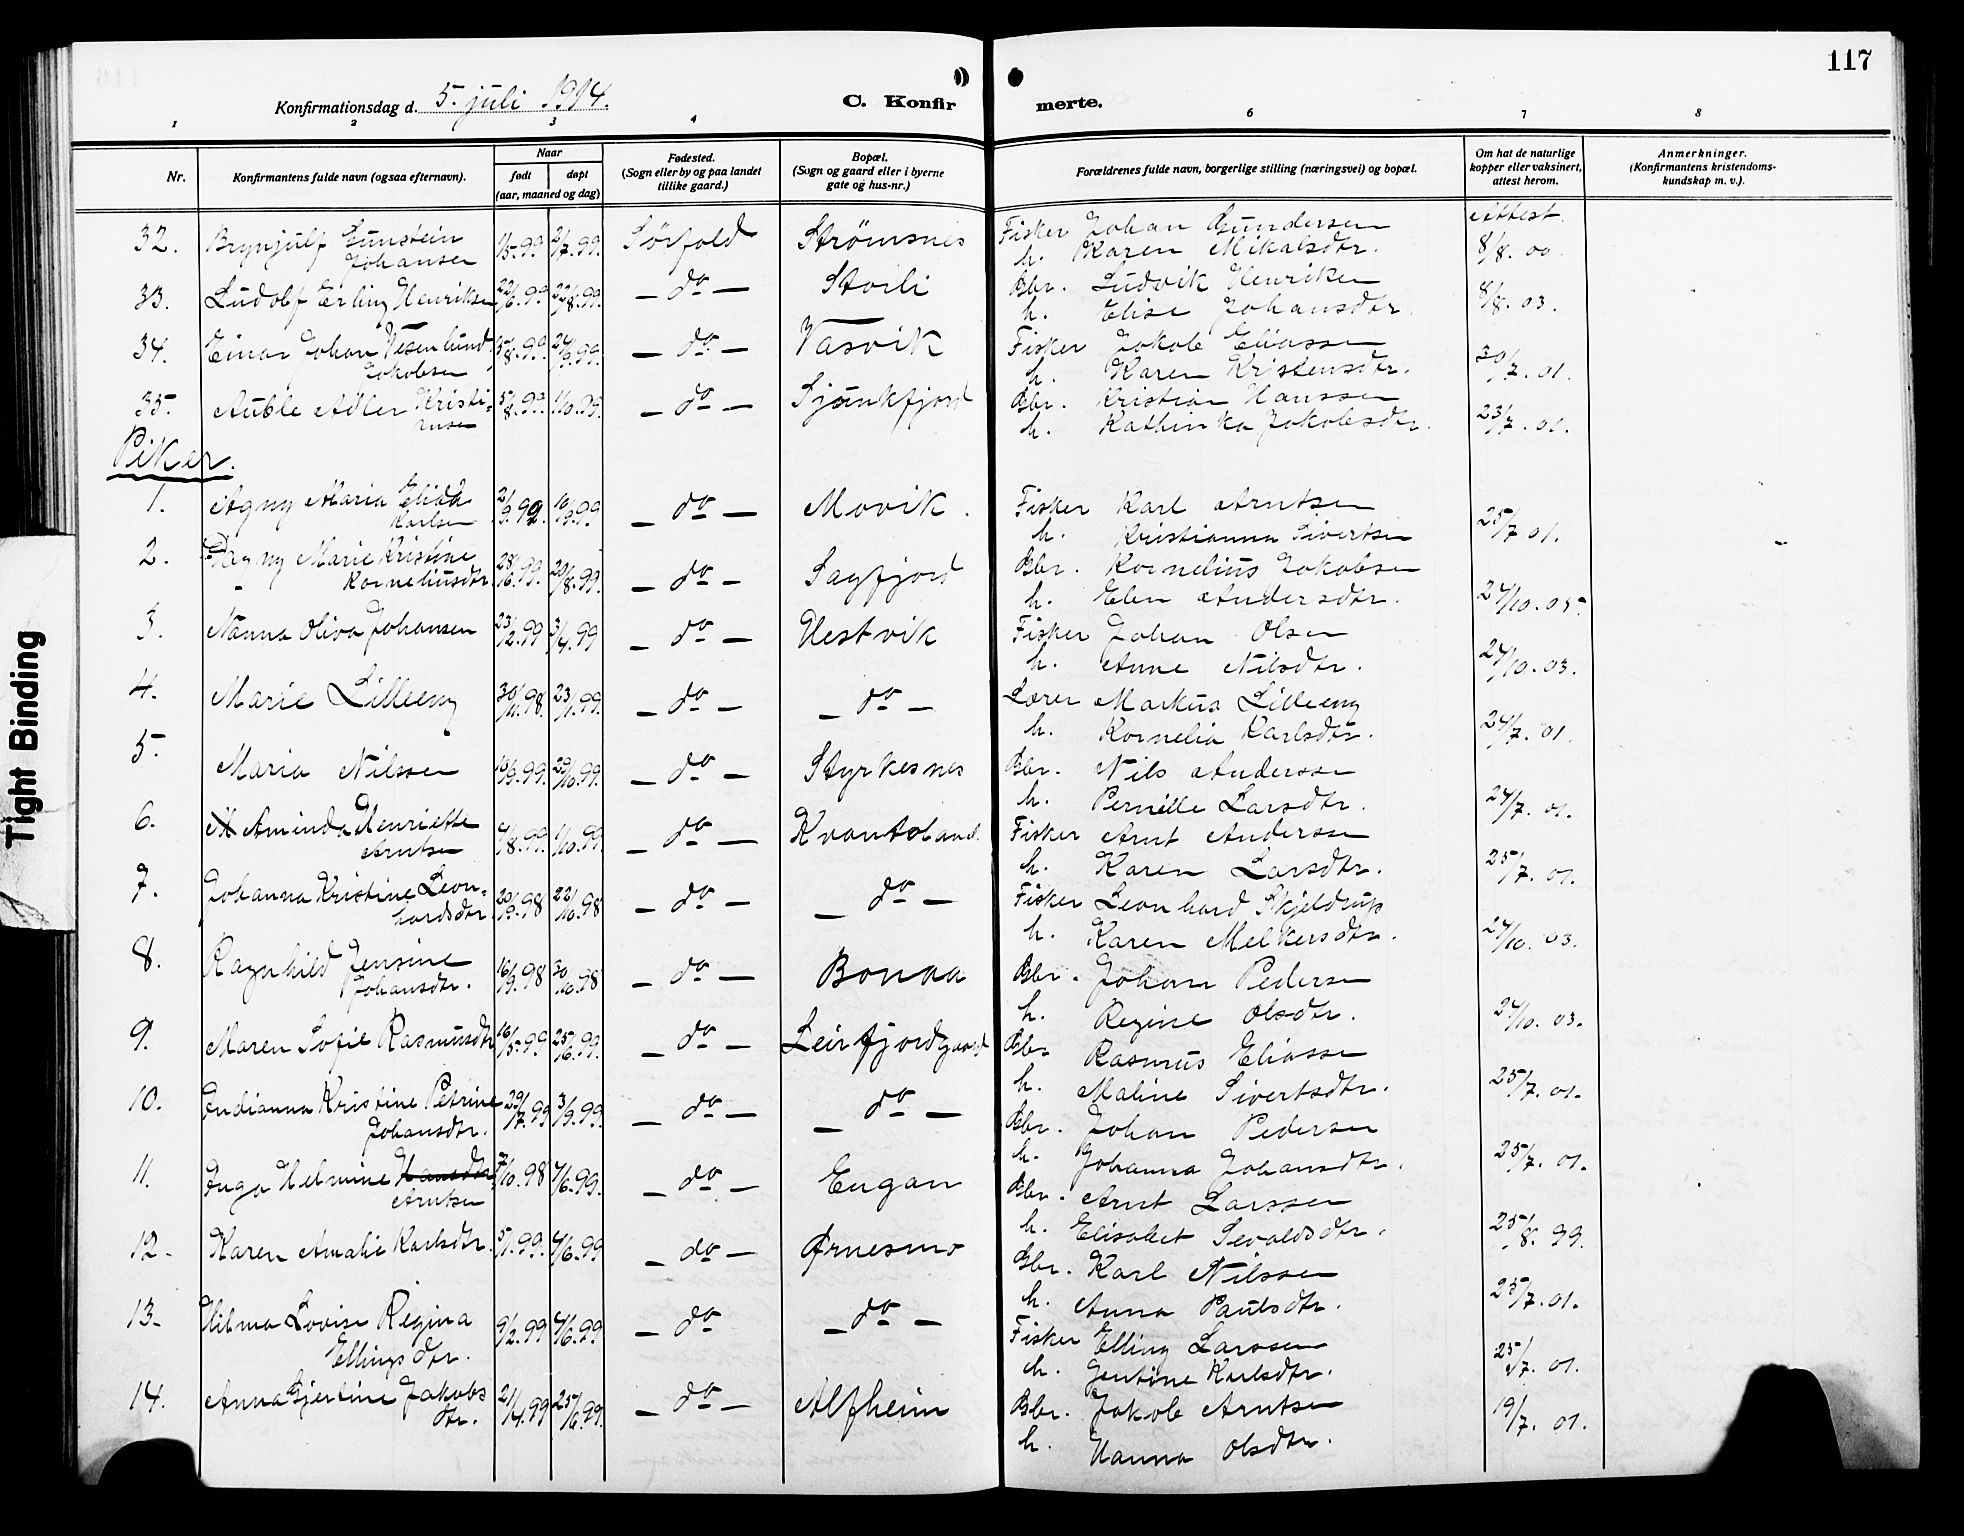 117
Konfirmationsdag d. 5. juli 1914.
C. Konfirmerte.
1 2 3 4 6 7 8
Nr.
Konfirmantens fulde navn (ogsaa efternavn).
Naar
født
døpt
(aar, maaned og dag)
Fødested.
(Sogn eller by og paa landet
tillike gaard.)
Bopæl.
(Sogn og gaard eller i byerne
gate og hus-nr.)
Forældrenes fulde navn, borgerlige stilling (næringsvei) og bopæl.
Om hat de naturlige
kopper eller vaksinert,
attest herom.
Anmerkninger.
(Konfirmantens kristendoms-
kundskap m. v.).
32. Brynjulf Gunstein Johansen 1/5.99 2/7.99 Sørfold Strømsnes Fisker Johan Gundersen Attest
h. Karen Mikalsdtr. 8/8.00
33. Ludolf Erling Henriksen 22/6.99 22/8.99 - do - Storli Gbr. Ludvik Henriksen
h. Elise Johansdtr. 8/8.03.
34. Einar Johan Jakobsen 24/9.99 - do - Vasvik Fisker Jakob Eliassen
h. Karen Kristensdtr. 30/7.01.
35. Adler Kristiansen 5/8.99 - do - Sjunkfjord Gbr. Kristian Hanssen
h. Kathinka Jakobsdtr. 23/7.01.
Piker.
1. Agny Maria Karlsen 10/9.99 - do - Movik. Fisker Karl Arntsen
h. Kristianna Sivertsen 25/7 01.
2. Dagny Marie Kristine Korneliusdtr. 28/6.99. 20/8.99. - do - Sagfjord Gbr. Kornelius Jakobsen
h. Elen Andersdtr. 24/10.05.
3. Nanna Oliva Johansen 23/2.99 3/4.99 - do - Hestvik Fisker Johan Olsen
h. Anne Nilsdtr. 24/10.03.
4. Marie Lilleeng 30/11.98. 23/1.99. - do - - do - Lærer Markus Lilleeng
h. Kornelia Karlsdtr. 24/7.01.
5. Maria Nilssen 16/9.99. 29/10.99. - do - Styrkesnes Gbr. Nils Anderssen
h. Pernille Larsdtr. 24/7.01.
6. Aminda Henriette Arntsen 4/8.99. 1/10.99 - do - Fisker Arnt Andersen
h. Karen Larsdtr. 25/7.01.
7. Johanna Kristine Leonhardsdtr. 20/9.98 22/10.98 - do - - do - Fisker Leonhard Skjeldrup
h. Karen Melkersdtr. 24/10.03.
8. Ragnhild Jensine Johansdtr. 16/9.98 30/10.98 - do - Bonaa Gbr. Johan Pedersen
h. Regine Olsdtr. 24/10.03.
9. Maren Sofie Rasmusdtr 16/5.99 25/6.99. - do - Leirfjordgaard Gbr Rasmus Eliassen
h. Maline Sivertsdtr. 25/7.01.
10. Endianna Kristine Petrine Johansdtr. 29/7.99 3/9.99. - do - - do - Gbr. Johan Pedersen
h. Johanna Johansdtr. 25/7.01.
11. Inga Helmine Hansdtr Arntsen 7/10.98 4/6.99. - do - Engan Gbr. Arnt Larssen
h. Elisabet Sevaldsdtr. 25/8.99.
12. Karen Amalie Karlsdtr. 5/1.99. 4/6.99 - do - Ørnesmo Gbr. Karl Nilssen
h. Anna Paulsdtr. 25/7.01.
13. Hilma Lovise Regina Ellingsdtr. 9/2.99 4/6.99 - do - do - Fisker Elling Larssen
h. Jentine Karlsdtr. 25/7.01.
14. Anna Gjertine Jakobsdtr. 21/4.99 25/6.99. - do - Alfheim Gbr. Jakob Arntsen
h. Hanna Olsdtr. 19/7.01.
Tight Binding